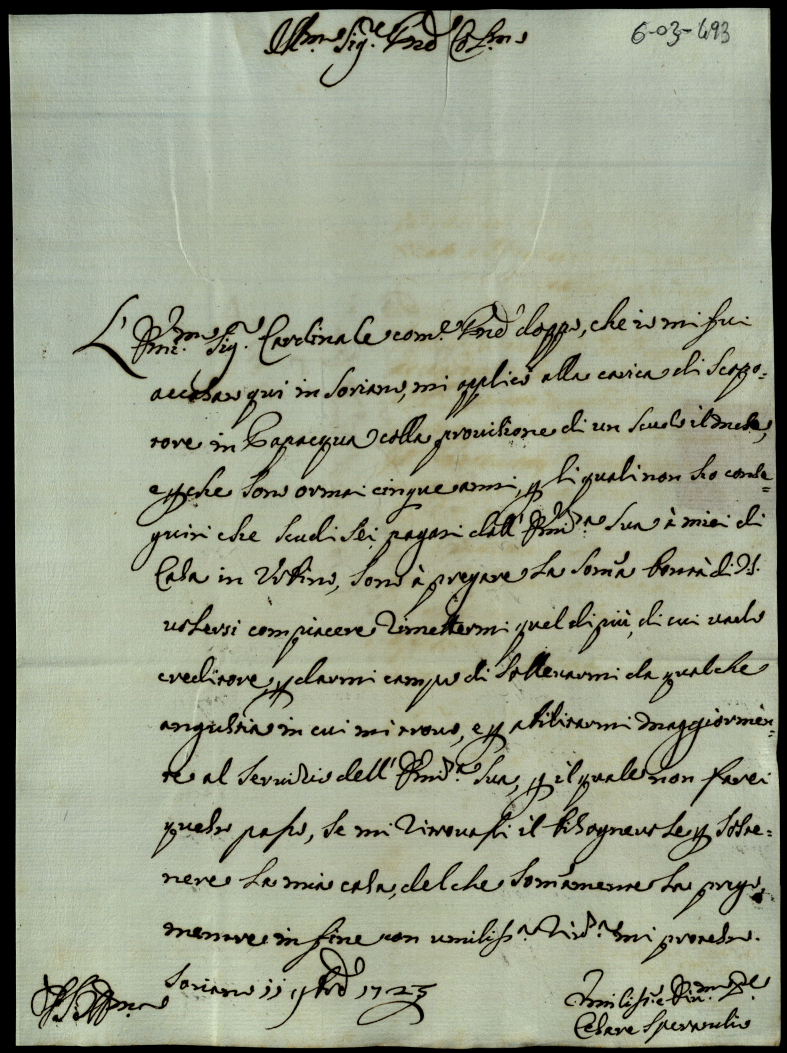 6-03-693
Ill.mo Sig.re Pnd Col.mo
L'Em.mo Sig.r Cardinale com.e Pnd.e doppo, che io mi fui
accasato qui in Soriano, mi applicò alla carica di Scopa=
tore in Papacqua colla provisione di un scudo il mese,
e perche sono ormai cinque anni, p li quali non hò conse=
guiti che scudi sei pagati dall' Em.za Sua à miei di
Casa in Urbino, sono à pregare la som.a bontà di VS.
volersi compiacere rimettermi quel di più, di cui vado
creditore, p darmi campo di sollevarmi da qualche
angustia in cui mi trovo, e p abilitarmi maggiormen=
te al servizio dell' Em.za Sua, p il quale non farei
questo passo, se mi ritrovassi il bisognevole p soste=
nere la mia casa, del che som.amente la prego,
mentre in fine con umiliss.a riv.a mi protesto.
Soriano 11 1723
Umiliss.o e
Cesare Sperandio